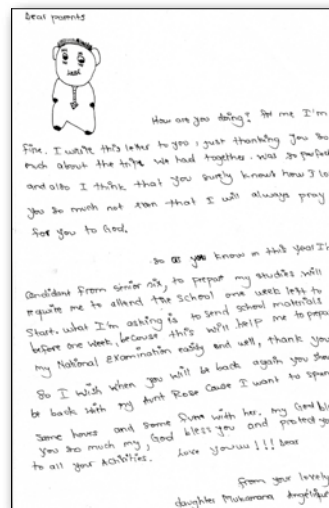 Dear parents
How are you doing? for me I'm
fine. I write this letter to you, just thanking you so
much about the trips we had together. was so perfect
and also I think that you surely knows how I lo
you so much not even that I will always pray
for you to God.
so as you know in this year I'm
candidant from senior six, to prepar my studies will
require me to attend the school one week left to
Start. what I'm asking is to send school materials
before one week, because this will help me to prepa
my National Examination easily and well, thank you
So I wish when you will be back again you shou
be back with my Aunt Rose Cause I want to spen
some hours and some funs with her. my God ble
you so much my, God bless you and protect you
to all your Activities. Love youuu!!! Dear
from your lovely
daughter Mukamana Angelique